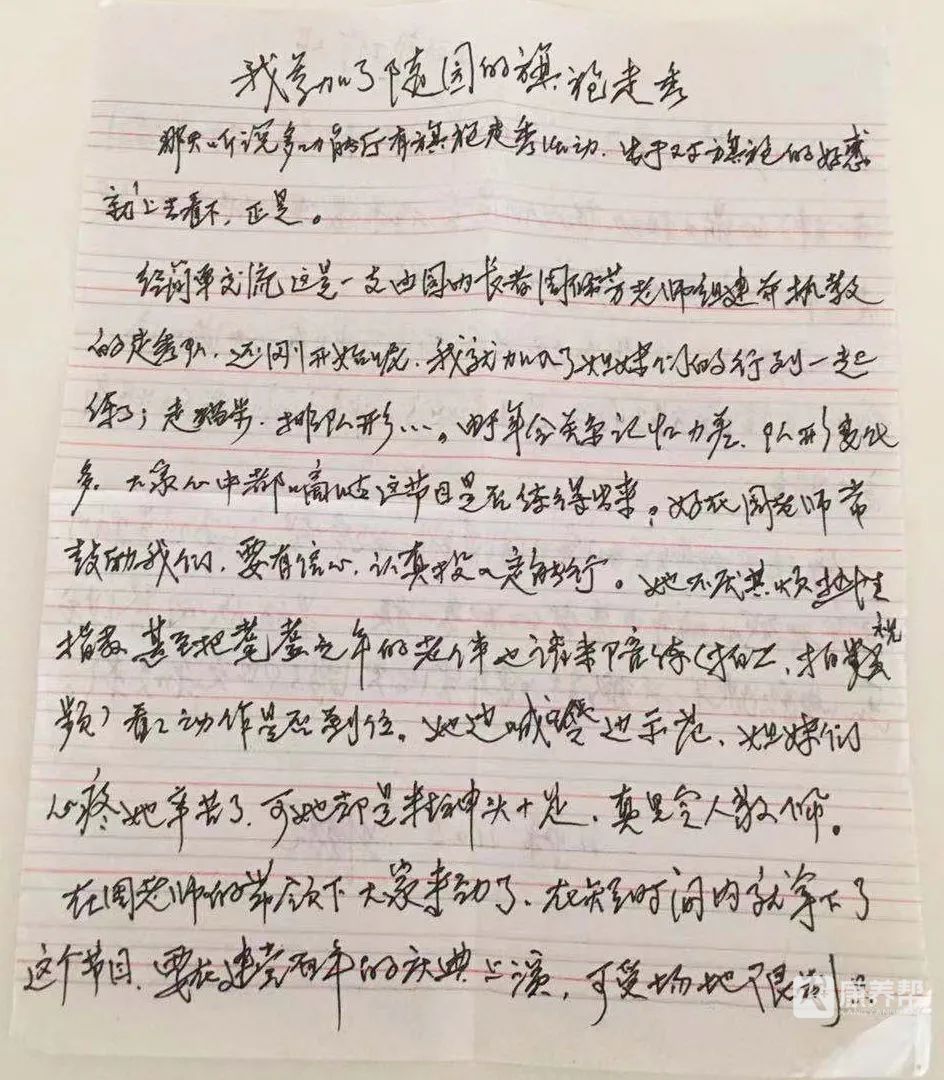 我参加了随园的旗袍走秀
那天听说多功能厅有旗袍走秀活动，出于对旗袍的好感
就上去看下，正是。
经简单交流这是一支由园内长者周 芳老师组建并执教
的走秀队，还刚开始呢，我就加入了姐妹们的行列一起
练习；走猫步，排队形…。由于年令关系记忆力差，队形变化
多，大家心中都嘀咕这节目是否练得出来，好在周老师常
鼓励我们，要有信心，认真投入定能行。她不厌其烦 
指教，甚至把耄耋之年的老伴也请来陪练（拍照，拍视
频）看看动作是否到位。她边喊 边示范，姐妹们
心疼她辛苦了，可她却是精神头十足，真是令人敬佩。
在周老师的带领下大家来劲了，在短时间内就拿下了
这个节目，要在建党百年的庆典上演，可受场地限制，
康养帮